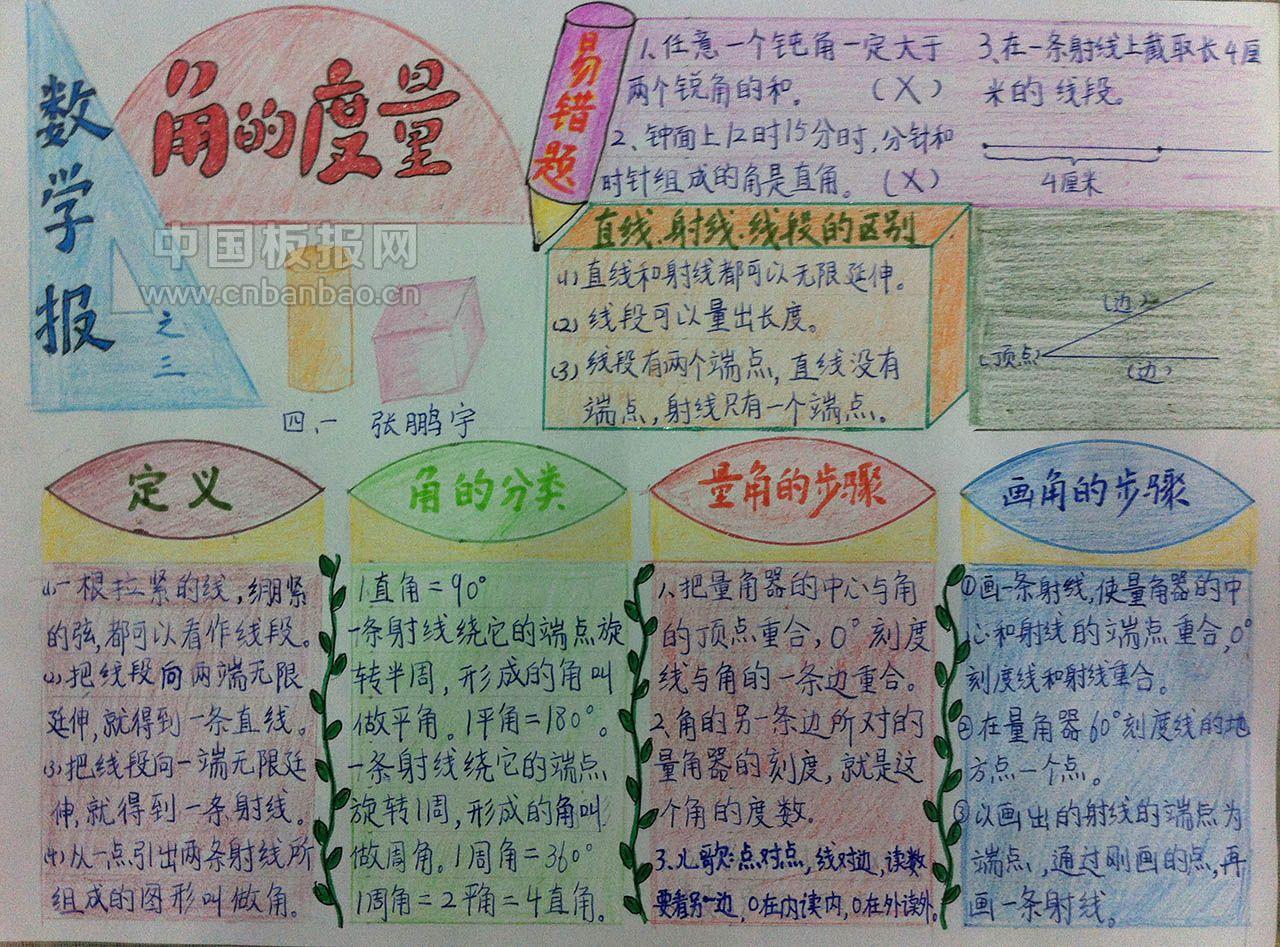 数学报
之三
角的度量
中国板报网
www.cnbanbao.cn
四、一 张鹏宇
易错题
1、任意一个钝角一定大于
两个锐角的和。 (X)
2、钟面上12时15分时,分针和
时针组成的角是直角。 (X)
3、在一条射线上截取长4厘
米的线段。
4厘米
直线、射线、线段的区别
(1)直线和射线都可以无限延伸。
(2)线段可以量出长度。
(3)线段有两个端点,直线没有
端点,射线只有一个端点。
(边)
(顶点)
(边)
定义
(1)一根拉紧的线,绷紧
的弦,都可以看作线段。
(2)把线段向两端无限
延伸,就得到一条直线。
(3)把线段向一端无限延
伸,就得到一条射线。
(4)从一点引出两条射线所
组成的图形叫做角。
角的分类
1直角=90°
一条射线绕它的端点旋
转半周,形成的角叫
做平角。1平角=180°。
一条射线绕它的端点
旋转1周,形成的角叫
做周角。1周角=360°
1周角=2平角=4直角。
量角的步骤
1、把量角器的中心与角
的顶点重合,0°刻度
线与角的一条边重合。
2、角的另一条边所对的
量角器的刻度,就是这
个角的度数.
3、儿歌:点对点,线对边,读数
要看另一边,0在内读内,0在外读外。
画角的步骤
①画一条射线,使量角器的中
心和射线的端点重合,0°
刻度线和射线重合。
②在量角器60°刻度线的地
方点一个点。
③以画出的射线的端点为
端点,通过刚画的点,再
画一条射线。